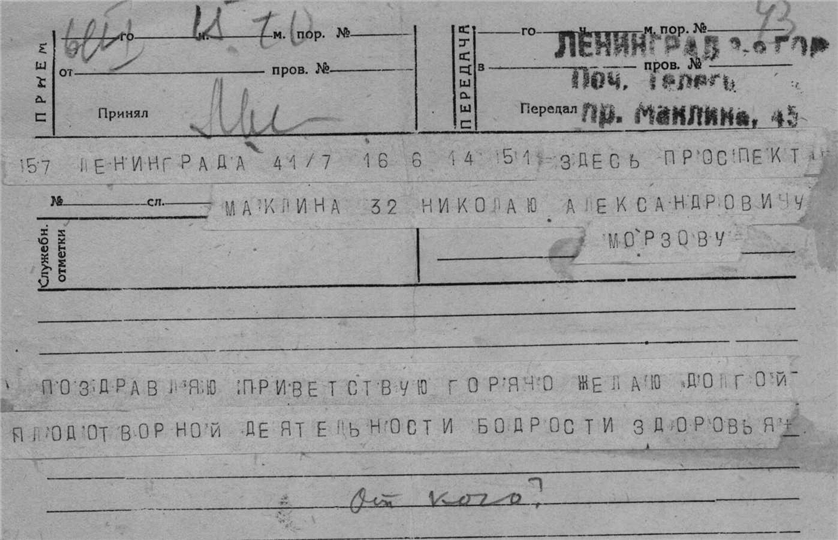 го ч. м. пор. №
го ч. м. пор. № 43
ПРИЕМ
от пров. №
Принял
ПЕРЕДАЧА
в пров. №
Передал
ЛЕНИНГРАД ГОР
Поч. Телегр
пр. Маклина, 45
157 ЛЕНИНГРАДА 41/7 16 6 14 51 ЗДЕСЬ ПРОСПЕКТ
№ сл. МАКЛИНА 32 НИКОЛАЮ АЛЕКСАНДРОВИЧУ
МОРЗОВУ
Служебн. отметки
ПОЗДРАВЛЯЮ ПРИВЕТСТВУЮ ГОРЯНО ЖЕЛАЮ ДОЛГОЙ
ПЛОДОТВОРНОЙ ДЕЯТЕЛЬНОСТИ БОДРОСТИ ЗДОРОВЬЯ
От кого?